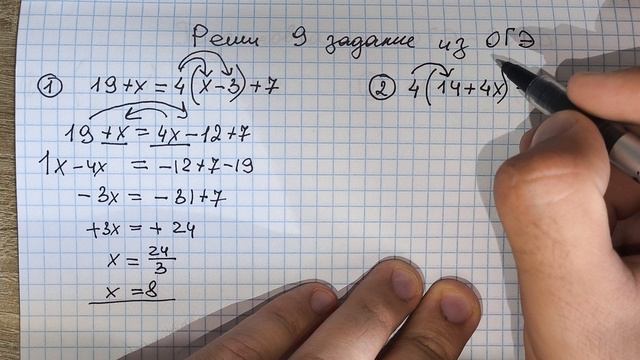 Реши 9 задание из ОГЭ
① 19+x=4(x-3)+7
19+x=4x-12+7
1x-4x=-12+7-19
-3x=-31+7
+3x=+24
x=24/3
x=8
② 4(14+4x)